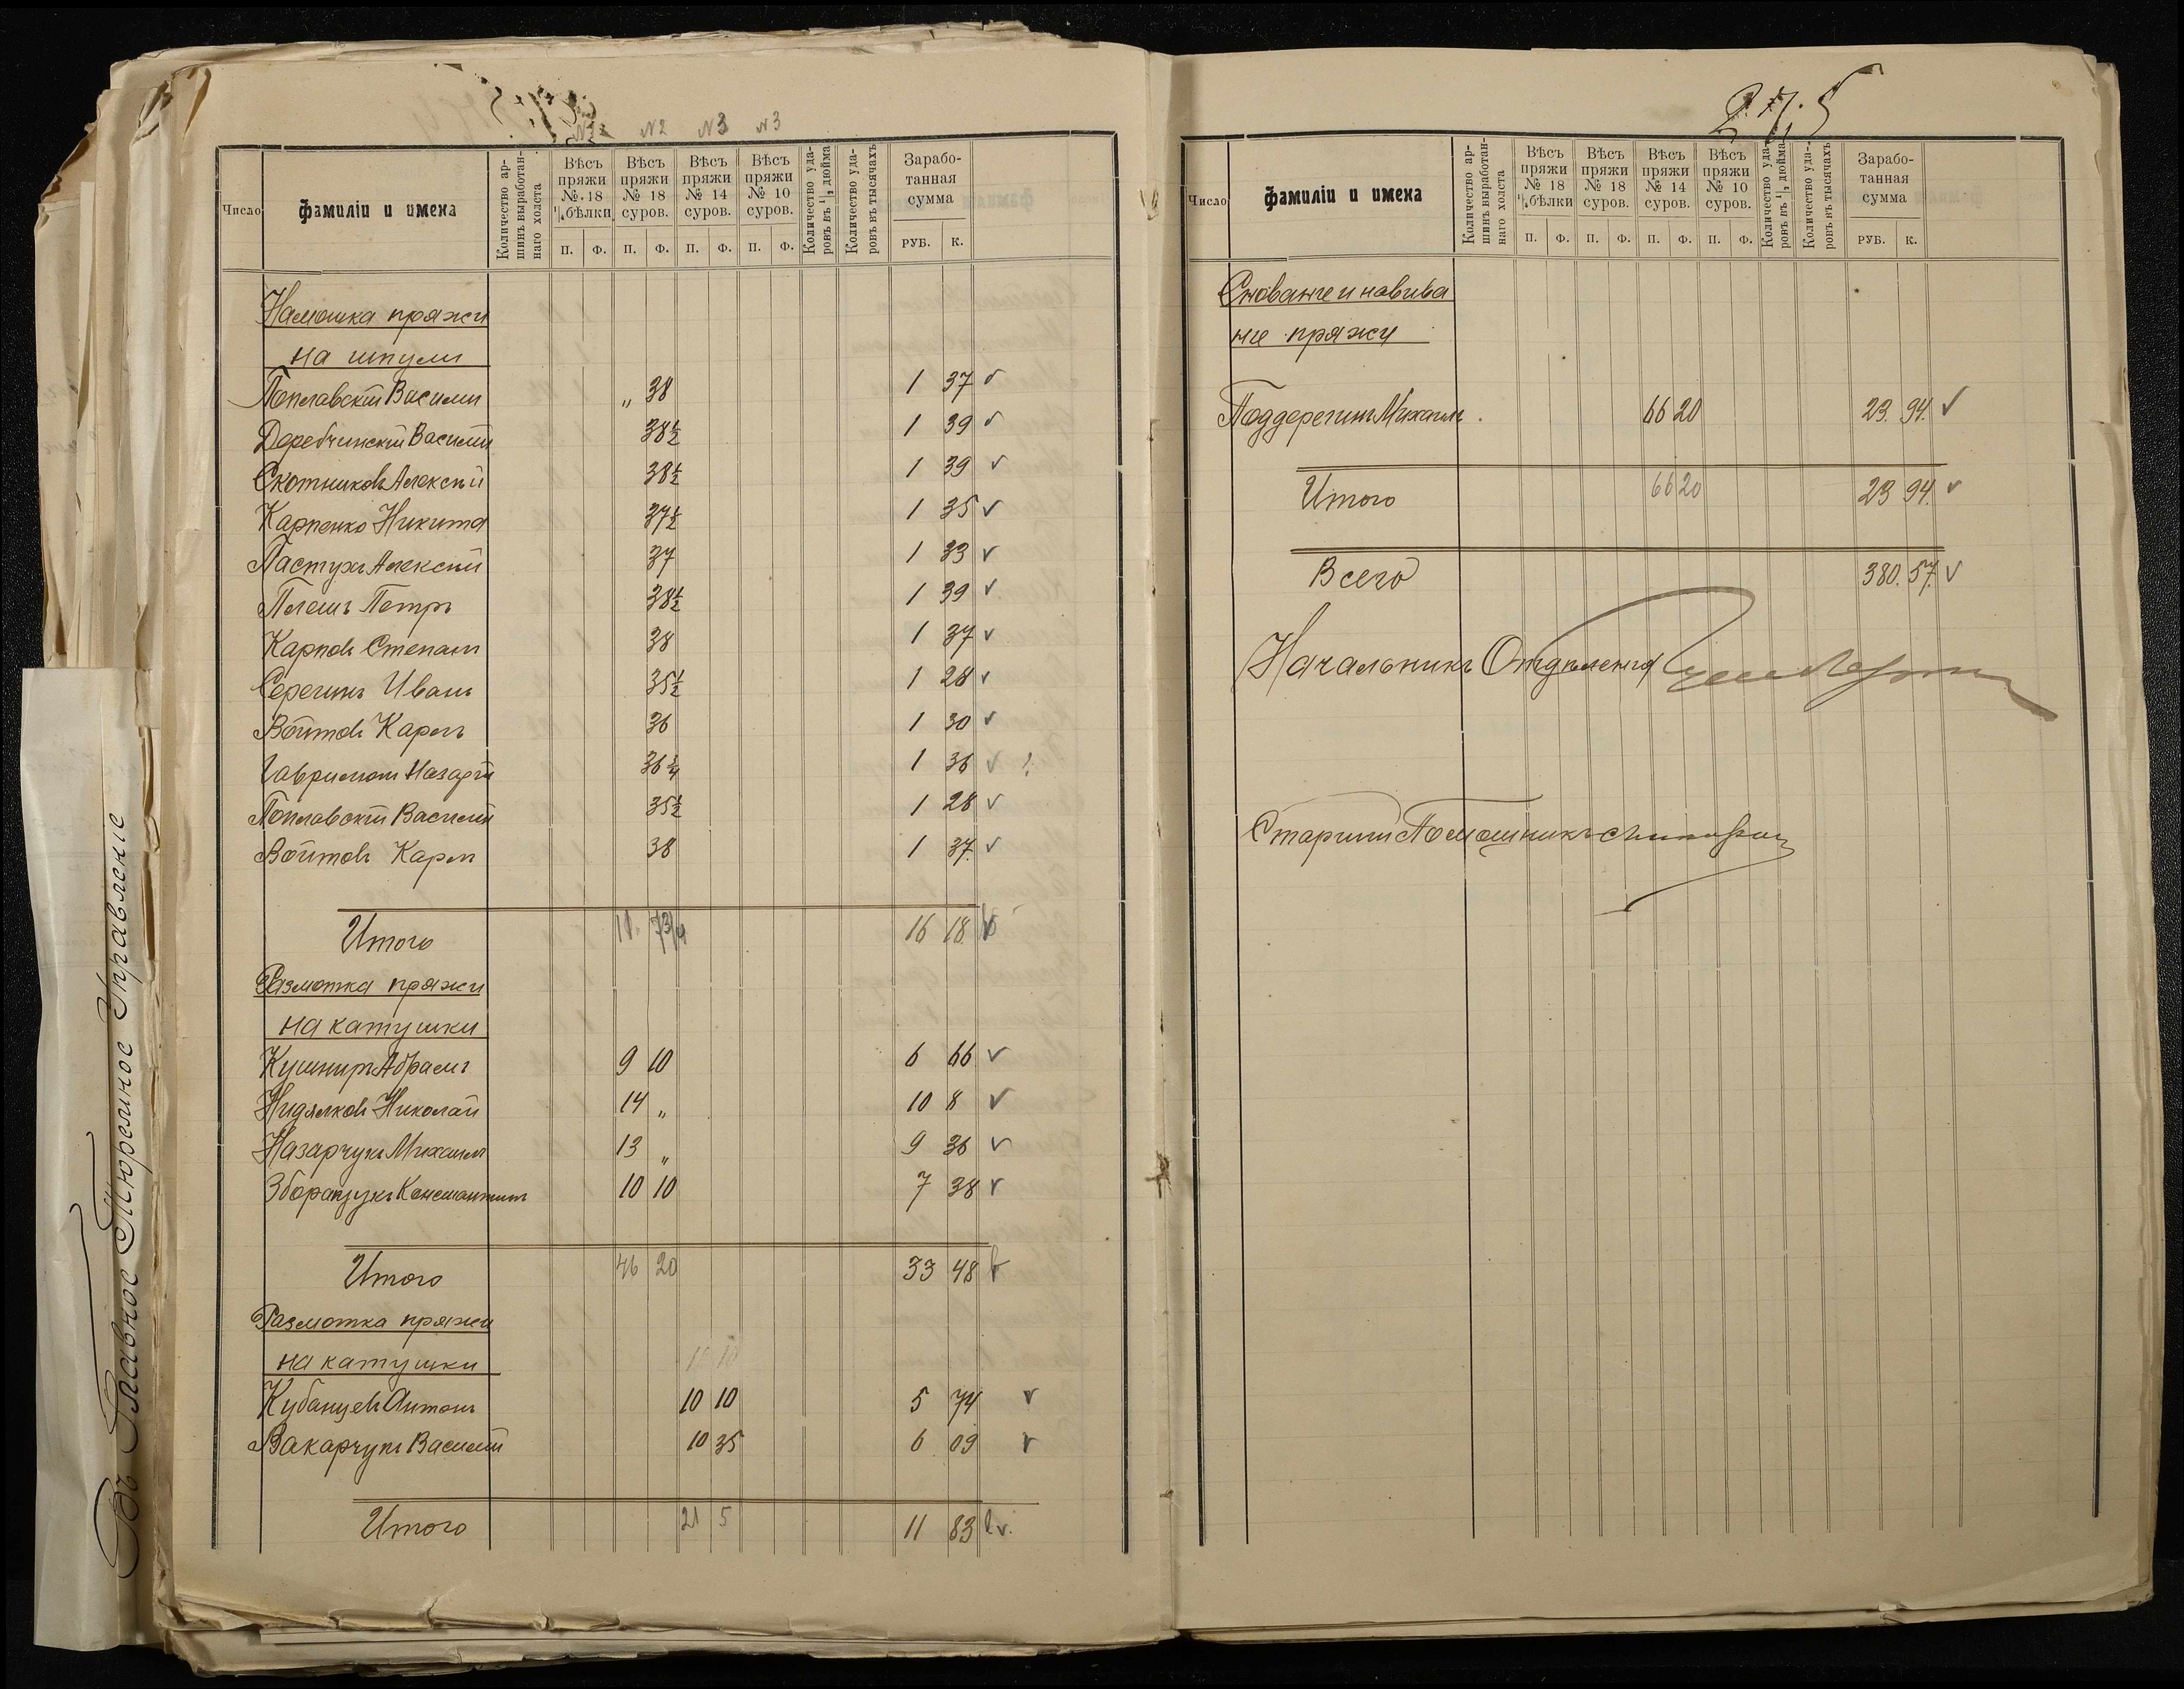 № 2 № 3 № 3
Число Фамиліи и имена Количество ар-шинъ выработан-наго холста Вѣсъ пряжи № 18 ½ бѣлки Вѣсъ пряжи № 18 суров. Вѣсъ пряжи № 14 суров. Вѣсъ пряжи № 10 суров. Количество уда-ровъ въ ½ дюйма Количество уда-ровъ въ тысячахъ Зарабо-танная сумма
П. Ф. П. Ф. П. Ф. П. Ф. РУБ. К.
Намошка пряжи
на шпули
Поплавскій Василій „ 38 1 37
Деребчинскій Василій 38½ 1 39
Скотниковъ Алексѣй 38½ 1 39
Карпенко Никита 37½ 1 35
Пастухъ Алексѣй 37 1 33
Плешъ Петръ 38½ 1 39
Карповъ Степанъ 38 1 37
Серегинъ Иванъ 35½ 1 28
Войтовъ Карпъ 36 1 30
Гаврилюкъ Назарій 36¾ 1 36
Поплавскій Василій 35½ 1 28
Войтовъ Карпъ 38 1 37
Итого 11 7 3/4 16 18
Размотка пряжи
на катушки
Кушниръ Абрамъ 9 10 6 66
Нидялковъ Николай 14 „ 10 8
Назарчукъ Михаилъ 13 „ 9 36
Зборанчукъ Константинъ 10 10 7 38
Итого 46 20 33 48
Размотка пряжи
на катушки
Кубанцевъ Антонъ 10 10 5 74
Вакарчукъ Василій 10 35 6 09
Итого 21 5 11 83
Въ Главное Тюремное Управленіе
Число Фамиліи и имена Количество ар-шинъ выработан-наго холста Вѣсъ пряжи № 18 ½ бѣлки Вѣсъ пряжи № 18 суров. Вѣсъ пряжи № 14 суров. Вѣсъ пряжи № 10 суров. Количество уда-ровъ въ ½ дюйма Количество уда-ровъ въ тысячахъ Зарабо-танная сумма
П. Ф. П. Ф. П. Ф. П. Ф. РУБ. К.
Снованіе и навива
ніе пряжи
Поддерегинъ Михаилъ 66 20 23. 94.
Итого 66 20 23 94.
Всего 380. 57.
Начальникъ Отдѣленія
Старшій Помощникъ